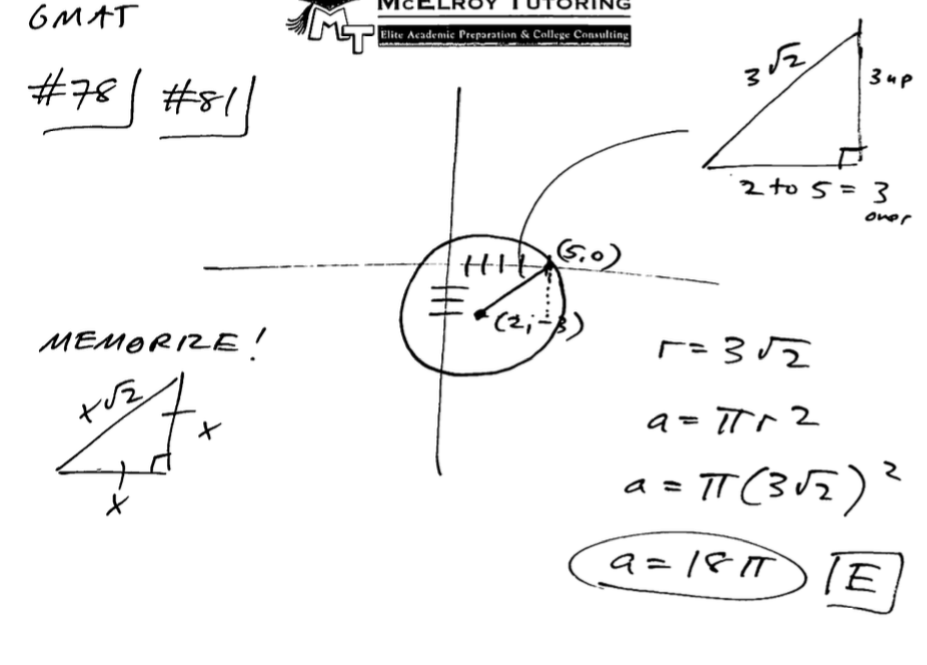 GMAT
McELROY TUTORING
MT
Elite Academic Preparation & College Consulting
#78 #81
3√2
3 up
2 to 5 = 3
over
(5,0)
(2,-3)
MEMORIZE!
x√2
x
x
r = 3√2
a = πr2
a = π(3√2)²
a = 18π E